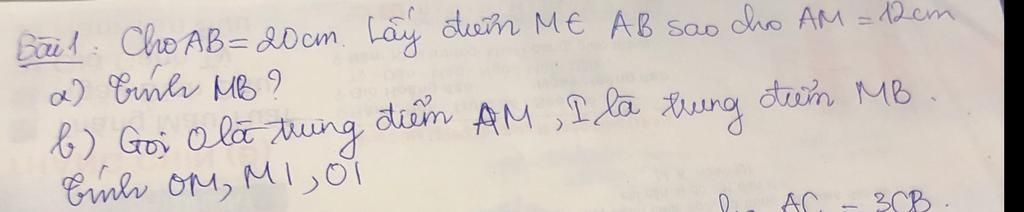 Bài 1: Cho AB = 20cm. Lấy điểm M ∈ AB sao cho AM = 12cm
a) Tính MB?
b) Gọi O là trung điểm AM, I là trung điểm MB.
Tính OM, MI, OI
AC = 3CB.